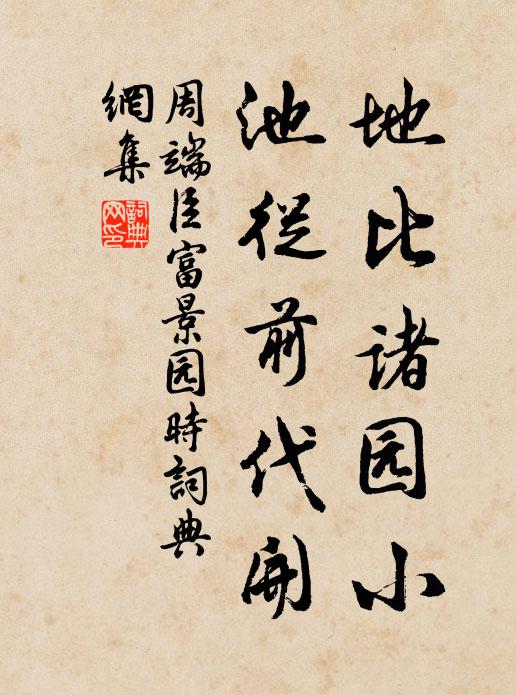 地比诸园小
池從前代開
周端臣富景园時詞典
網集
詞典
网印